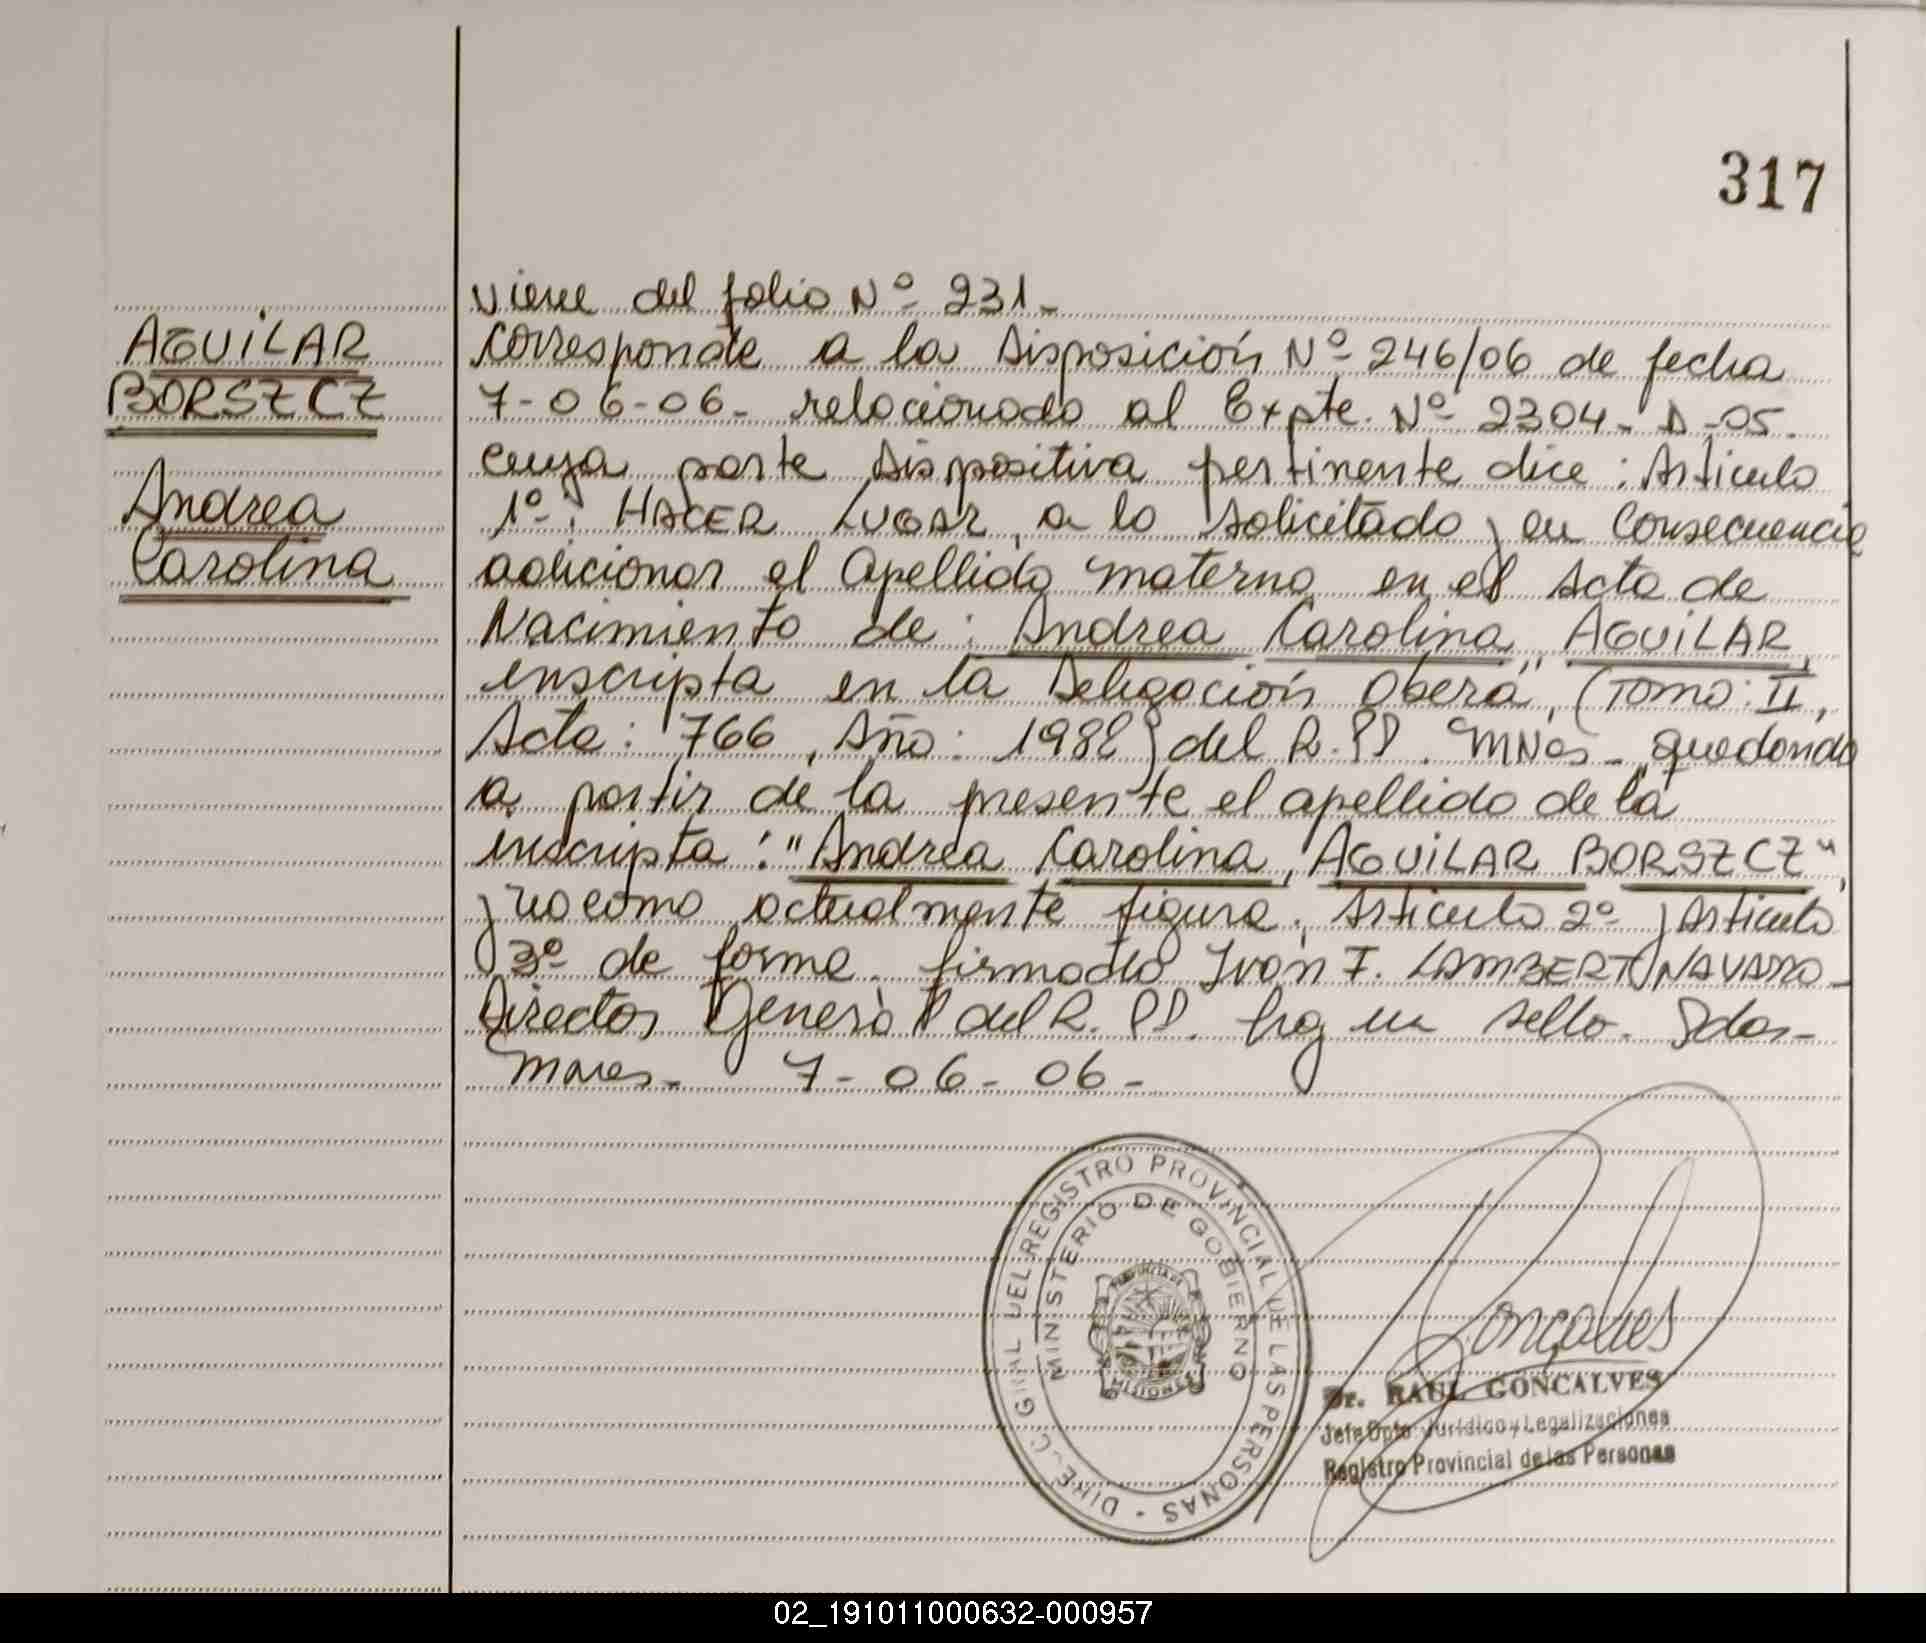 317
viene del folio Nº 231-
AGUILAR
BORSZCZ
Andrea
Carolina
Corresponde a la Disposición Nº 246/06 de fecha
7-06-06- relacionado al Expte. Nº 2304- D -05.
cuya parte dispositiva pertinente dice: Articulo
1º: HACER LUGAR, a lo solicitado y en Consecuencia
adicionar el Apellido materno en el Acta de
Nacimiento de: Andrea Carolina, AGUILAR,
inscripta en la Delegación "Oberá", (Tomo: II,
Acta: 766, Año: 1982) del R.PP. MNes- quedando
a partir de la presente el apellido de la
inscripta: "Andrea Carolina, AGUILAR BORSZCZ",
y no como actualmente figura. Articulo 2º y Articulo
3º de forma. firmado Ivan F. LAMBERT NAVARRO-
Director General del R. PP. hay un sello. Pdas-
Mnes- 7-06-06-
DIREC. GRAL DEL REGISTRO PROVINCIAL DE LAS PERSONAS -
MINISTERIO DE GOBIERNO
PROVINCIA DE
MISIONES
Goncalves
Dr. RAUL GONCALVES
Jefe Dpto. Jurídico y Legalizaciones
Registro Provincial de las Personas
02_191011000632-000957